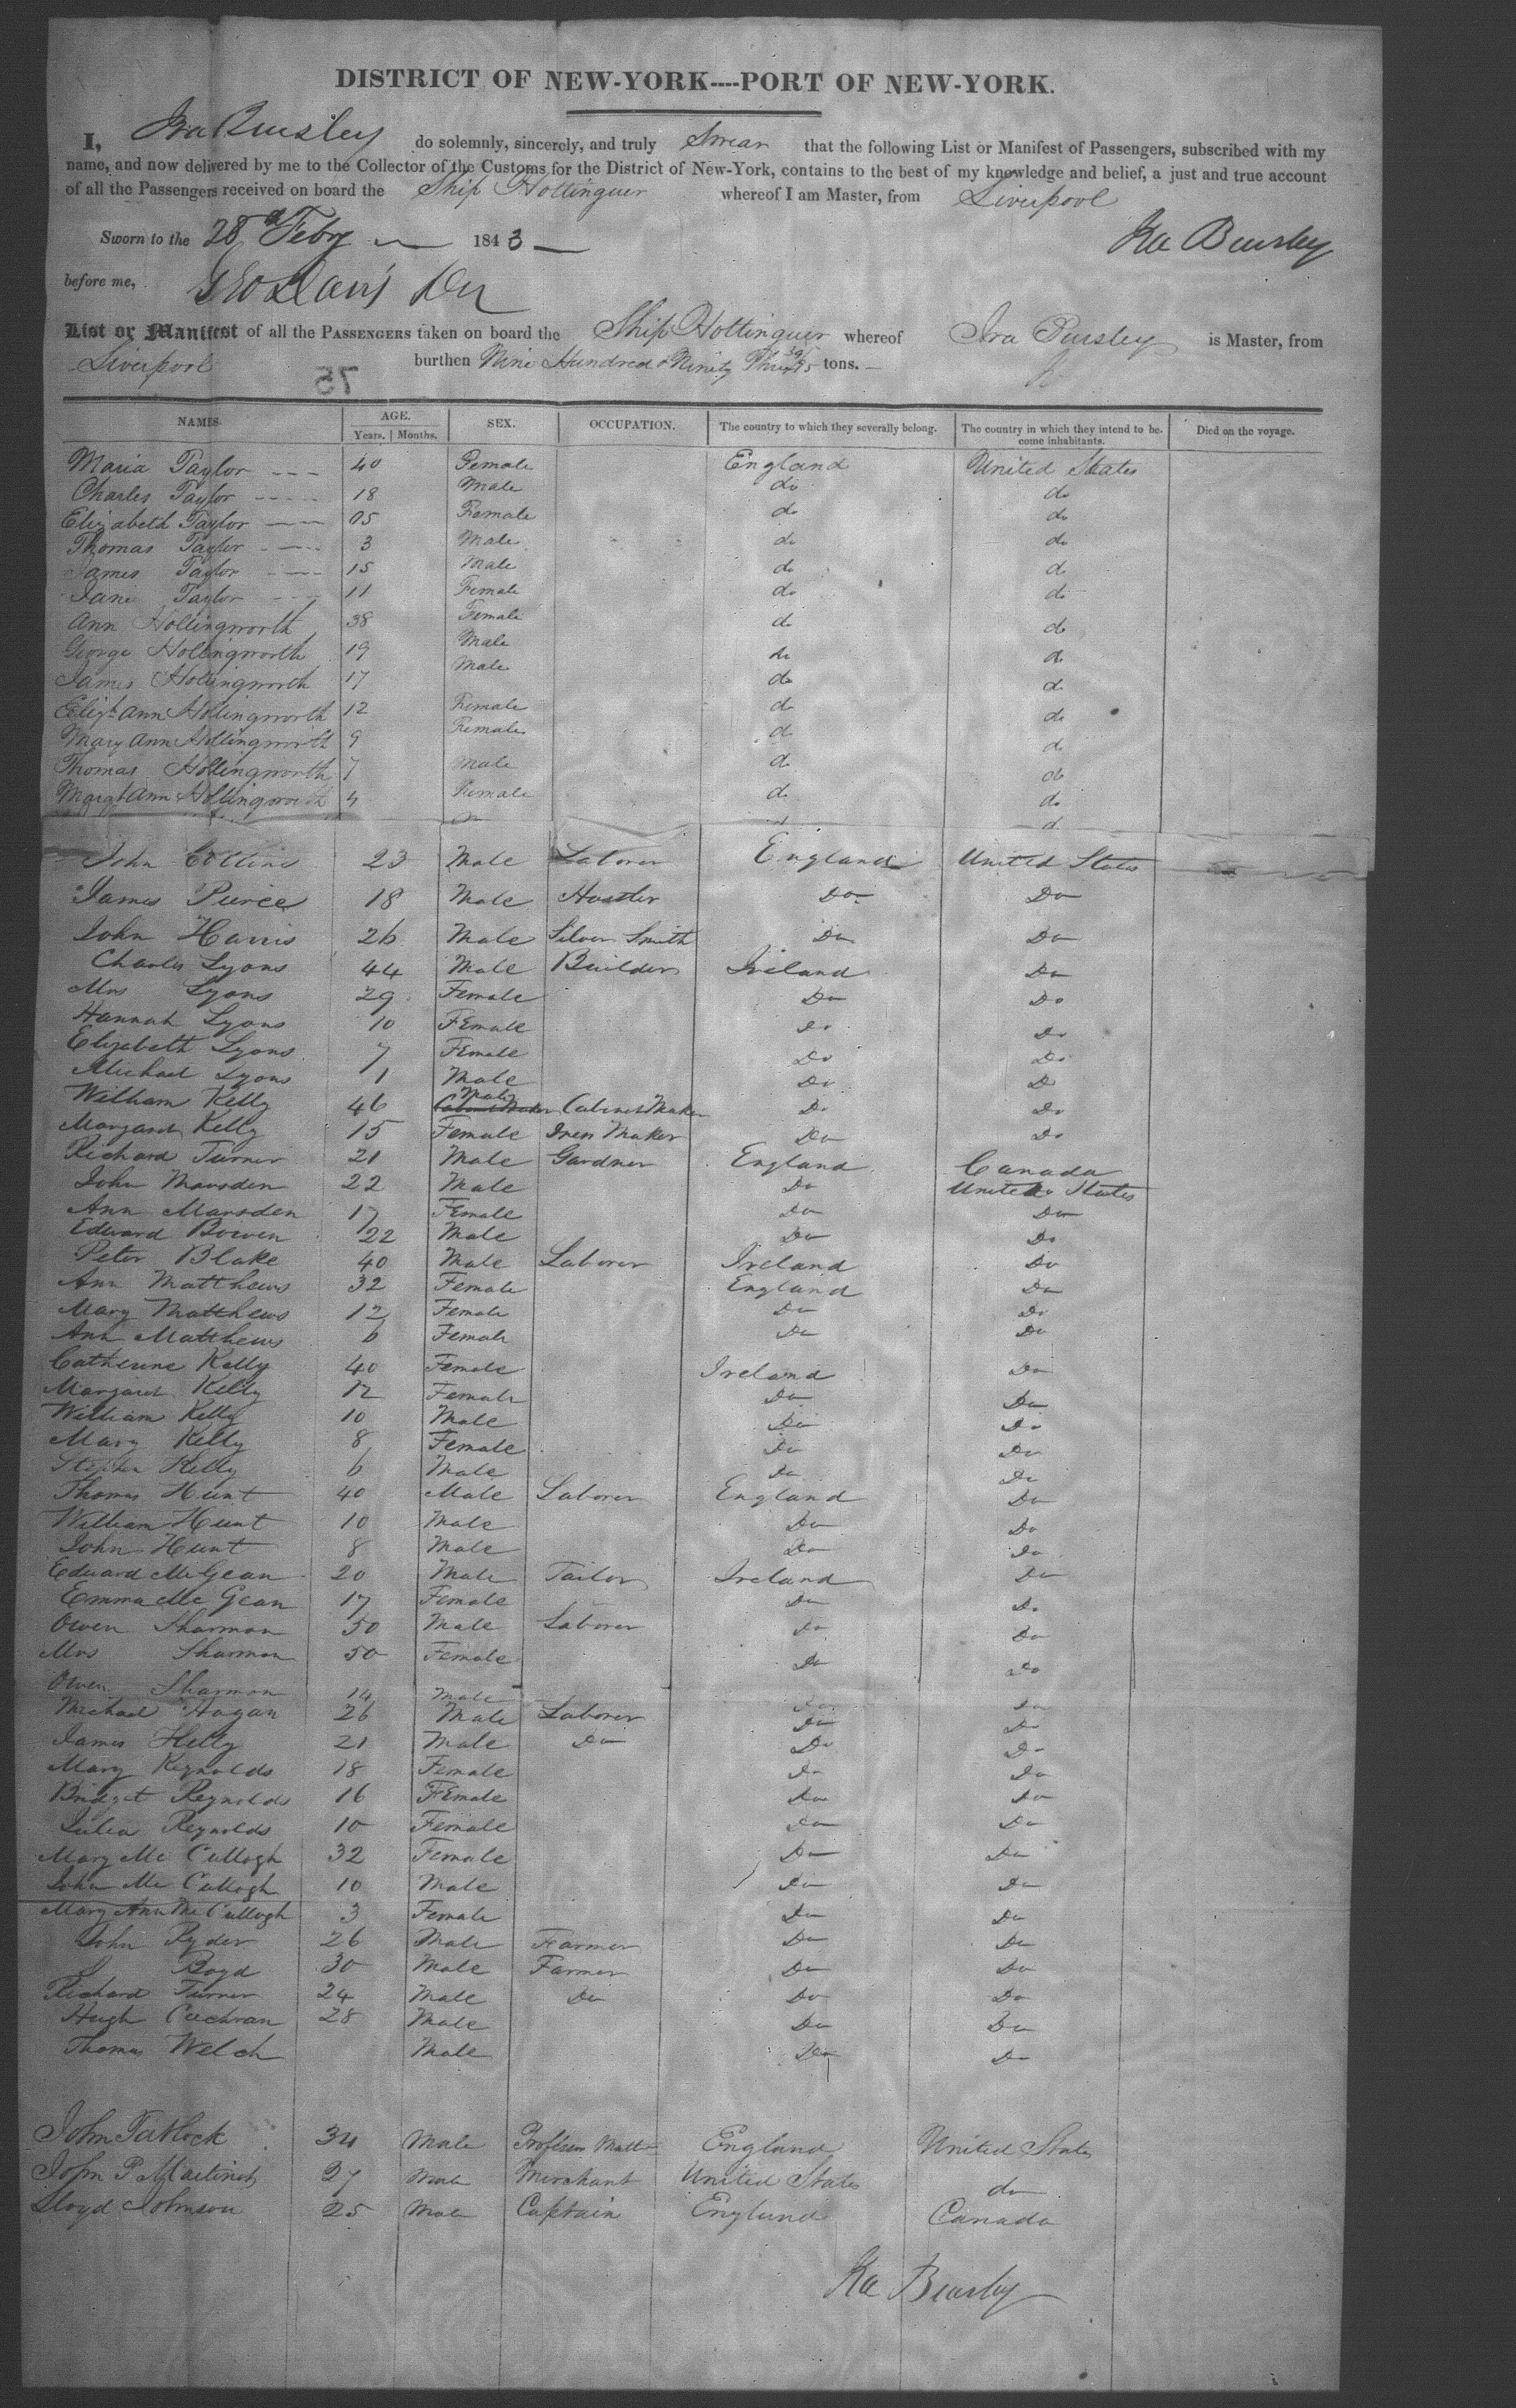 DISTRICT OF NEW-YORK----PORT OF NEW-YORK.
I, Ira Bursley do solemnly, sincerely, and truly Swear that the following List or Manifest of Passengers, subscribed with my
name, and now delivered by me to the Collector of the Customs for the District of New-York, contains to the best of my knowledge and belief, a just and true account
of all the Passengers received on board the Ship Hottinguer whereof I am Master, from Liverpool
Sworn to the 28 Feby 1843 Ira Bursley
before me,
List or Manifest of all the PASSENGERS taken on board the Ship Hottinguer whereof Ira Bursley is Master, from
Liverpool burthen Nine Hundred & Ninety Three tons.
75
NAMES. AGE. SEX. OCCUPATION. The country to which they severally belong. The country in which they intend to be- Died on the voyage.
Years. | Months. come inhabitants.
Maria Taylor 40 Female England United States
Charles Taylor 18 Male do do
Elizabeth Taylor 05 Female do do
Thomas Taylor 3 Male do do
James Taylor 15 Male do do
Jane Taylor 11 Female do do
Ann Hollingworth 38 Female do do
George Hollingworth 19 Male do do
James Hollingworth 17 Male do do
Elizh Ann Hollingworth 12 Female do do
Mary Ann Hollingworth 9 Female do do
Thomas Hollingworth 7 Male do do
Margt Ann Hollingworth 4 Female do do
John Collins 23 Male Laborer England United States
James Pierce 18 Male Hostler Do Do
John Harris 26 Male Silver Smith Do Do
Charles Lyons 44 Male Builder Ireland Do
Mrs Lyons 29 Female Do Do
Hannah Lyons 10 Female Do Do
Elizabeth Lyons 7 Female Do Do
Michael Lyons 1 Male Do Do
William Kelly 46 Male Cabinet Maker Do Do
Margaret Kelly 15 Female Dress Maker Do Do
Richard Turner 21 Male Gardner England Canada
John Marsden 22 Male Do United States
Ann Marsden 17 Female Do Do
Edward Bowen 22 Male Do Do
Peter Blake 40 Male Laborer Ireland Do
Ann Matthews 32 Female England Do
Mary Matthews 12 Female Do Do
Ann Matthews 6 Female Do Do
Catherine Kelly 40 Female Ireland Do
Margaret Kelly 12 Female Do Do
William Kelly 10 Male Do Do
Mary Kelly 8 Female Do Do
Stephen Kelly 6 Male Do Do
Thomas Hunt 40 Male Laborer England Do
William Hunt 10 Male Do Do
John Hunt 8 Male Do Do
Edward McGean 20 Male Tailor Ireland Do
Emma McGean 17 Female Do Do
Owen Sharmon 50 Male Laborer Do Do
Mrs Sharmon 50 Female Do Do
Owen Sharmon 14 Male Do Do
Michael Hagan 26 Male Laborer Do Do
James Kelly 21 Male Do Do Do
Mary Reynolds 18 Female Do Do
Bridget Reynolds 16 Female Do Do
Julia Reynolds 10 Female Do Do
Mary Mc Cullogh 32 Female Do Do
John Mc Cullogh 10 Male Do Do
Mary Ann Mc Cullogh 3 Female Do Do
John Ryder 26 Male Farmer Do Do
Boyd 30 Male Farmer Do Do
Richard Turner 24 Male Do Do Do
Hugh Cochran 28 Male Do Do
Thomas Welch Male Do Do
John Tatlock 34 Male Professor England United States
John P Martin 27 Male Merchant United States do
Lloyd Johnson 25 Male Captain England Canada
Ira Bursley